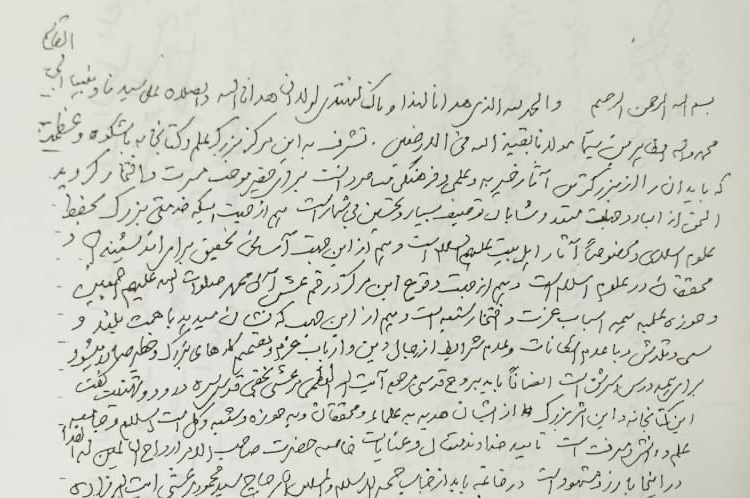 بسم الله الرحمن الرحیم والحمد لله الذی هدانا لهذا و ماکنا لنهتدی لولا ان هدانا الله والصلاة علی سیدنا و نبینا ابی القاسم
محمد وآله الطاهرین سیما مولانا بقیة الله فی الارضین . تشرف به این مرکز بزرگ علم و کتابخانه باشکوه و عظمت
که باید آن را از بزرگترین آثار خیریه و علمی و فرهنگی معاصر دانست برای حقیر موجب مسرت و افتخار گردید
الحق از ابعاد و جهات متعدد شایان توصیف بسیار و تحسین بی شمار است هم از جهت اینکه خدمتی بزرگ بحفظ
علوم اسلامی و مخصوصاً آثار اهل بیت علیهم السلام است و هم از این جهت آسانی تحقیق برای اندیشمندان و
محققان در علوم اسلام است و هم از جهت وقوع این مرکز در قم عش آل محمد صلوات الله علیهم اجمعین
و حوزه علمیه اسباب عزت و افتخار شیعه است و هم از این جهت که نشان میدهد با همت بلند و
سعی و تلاش و با عدم امکانات و عدم شرایط از رجال دین و ارباب عزم و تصمیم کارهای بزرگ
برای همه درس است انصافاً باید بروح قدسی مرحوم آیت الله العظمی مرعشی نجفی قدس سره درود و تهنیت گفت
این کتابخانه و این اثر بزرگ از ایشان هدیه به علماء و محققان و به حوزه و شیعه و کل امت اسلام و جامعه
علم و دانش و معرفت است تأیید خداوند متعال و عنایات خاصه حضرت صاحب الامر ارواح العالمین له الفداء
در اینجا بارز و مشهود است در خاتمه باید از جناب حجة الاسلام والمسلمین حاج سید محمود مرعشی